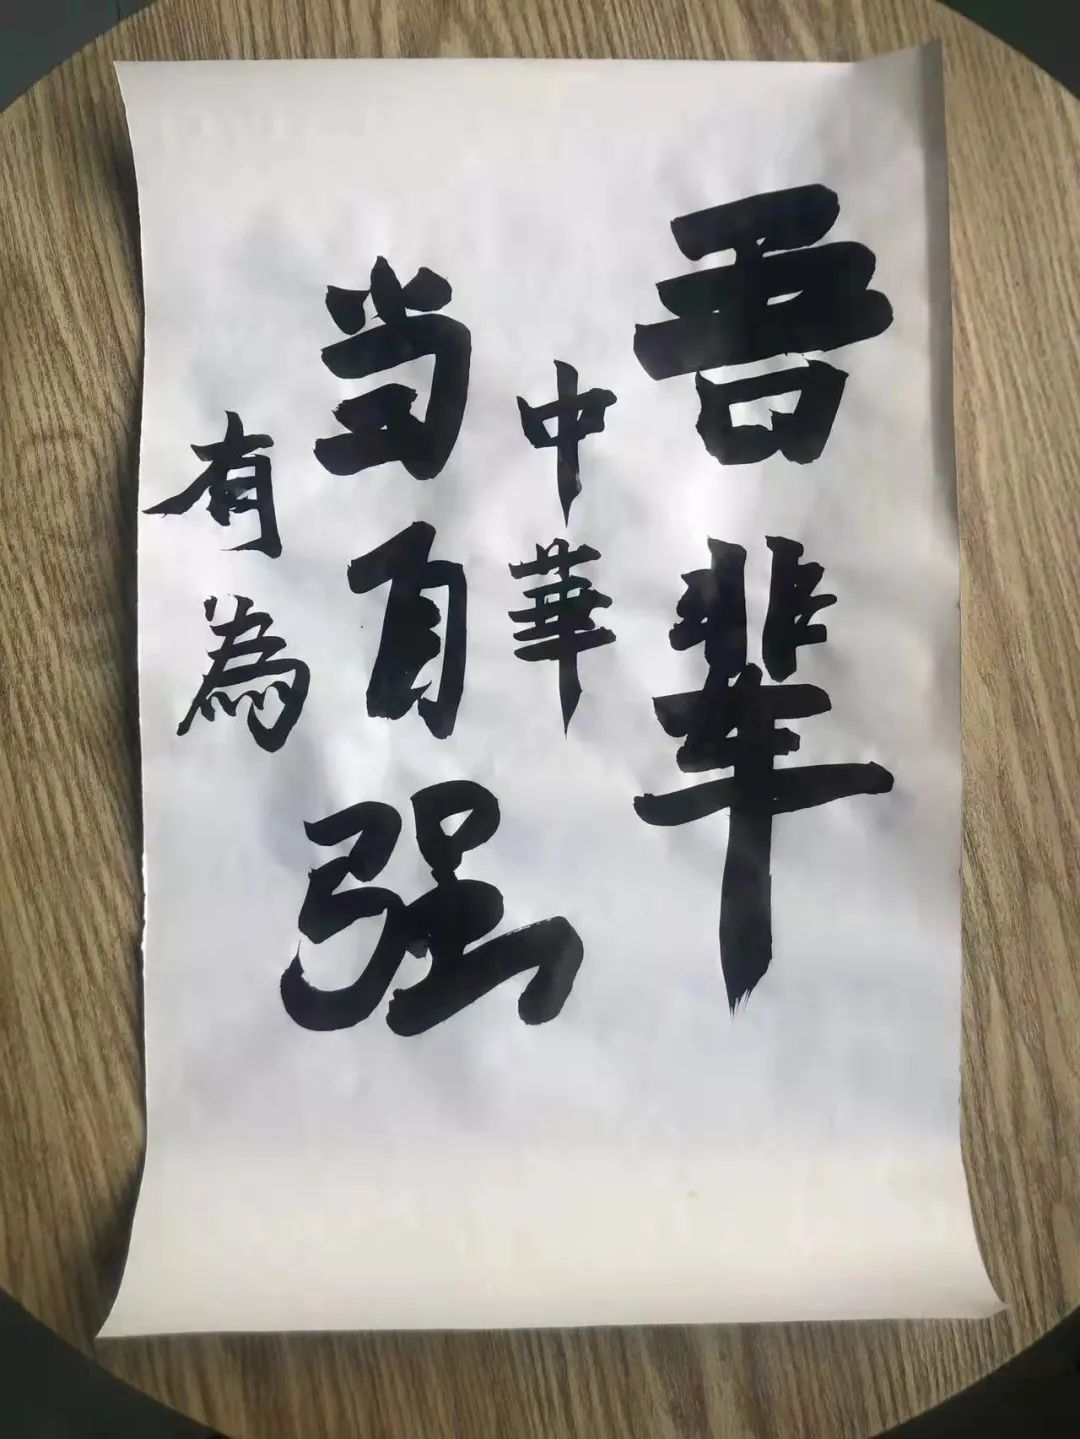 吾辈
中華
当自强
有為